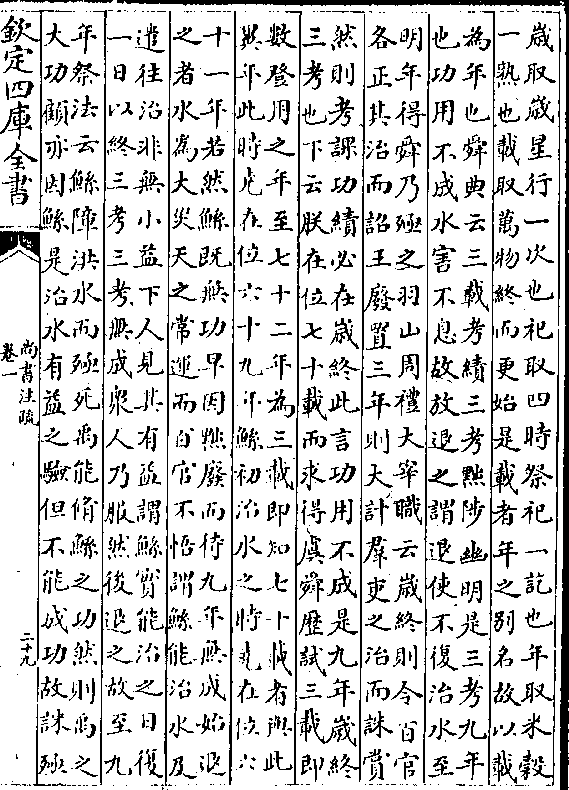 歲取歲星行一次也祀取四時祭祀一訖也年取米穀
一熟也載取萬物終而更始是載者年之别名故以載
為年也舜典云三載考績三考黜陟幽明是三考九年
也功用不成水害不息故放退之謂退使不復治水至
明年得舜乃殛之羽山周禮大宰職云歲終則令百官
各正其治而詔王廢置三年則大計羣吏之治而誅賞
然則考課功績必在歲終此言功用不成是九年歲終
三考也下云朕在位七十載而求得虞舜歷試三載即
數登用之年至七十二年為三載即知七十載者與此
異年此時堯在位六十九年鯀初治水之時堯在位六
十一年若然鯀既無功早因黜廢而待九年無成始退
之者水為大災天之常運而百官不悟謂鯀能治水及
遣往治非無小益下人見其有益謂鯀實能治之日復
一日以終三考三考無成衆人乃服然後退之故至九
年祭法云鯀障洪水而殛死禹能脩鯀之功然則禹之
大功顧亦因鯀是治水有益之驗但不能成功故誅殛
欽定四庫全書
尚書注疏
卷一
二十九